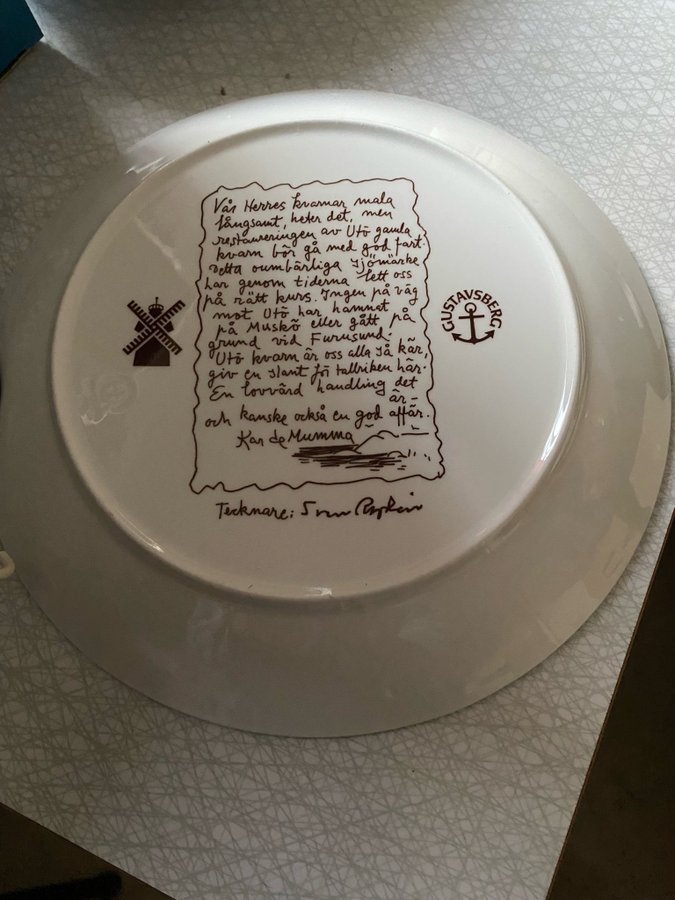 Vår Herres kvarnar mala
långsamt, heter det, men
restaureringen av Utö gamla
kvarn bör gå med god fart.
Detta oumbärliga sjömärke
har genom tiderna lett oss
på rätt kurs. Ingen på väg
mot Utö har hamnat
på Muskö eller gått på
grund vid Furusund.
Utö kvarn är oss alla så kär,
giv en slant för tallriken här.
En lovvärd handling det
är –
och kanske också en god affär.
Kar de Mumma
Tecknare:
GUSTAVSBERG